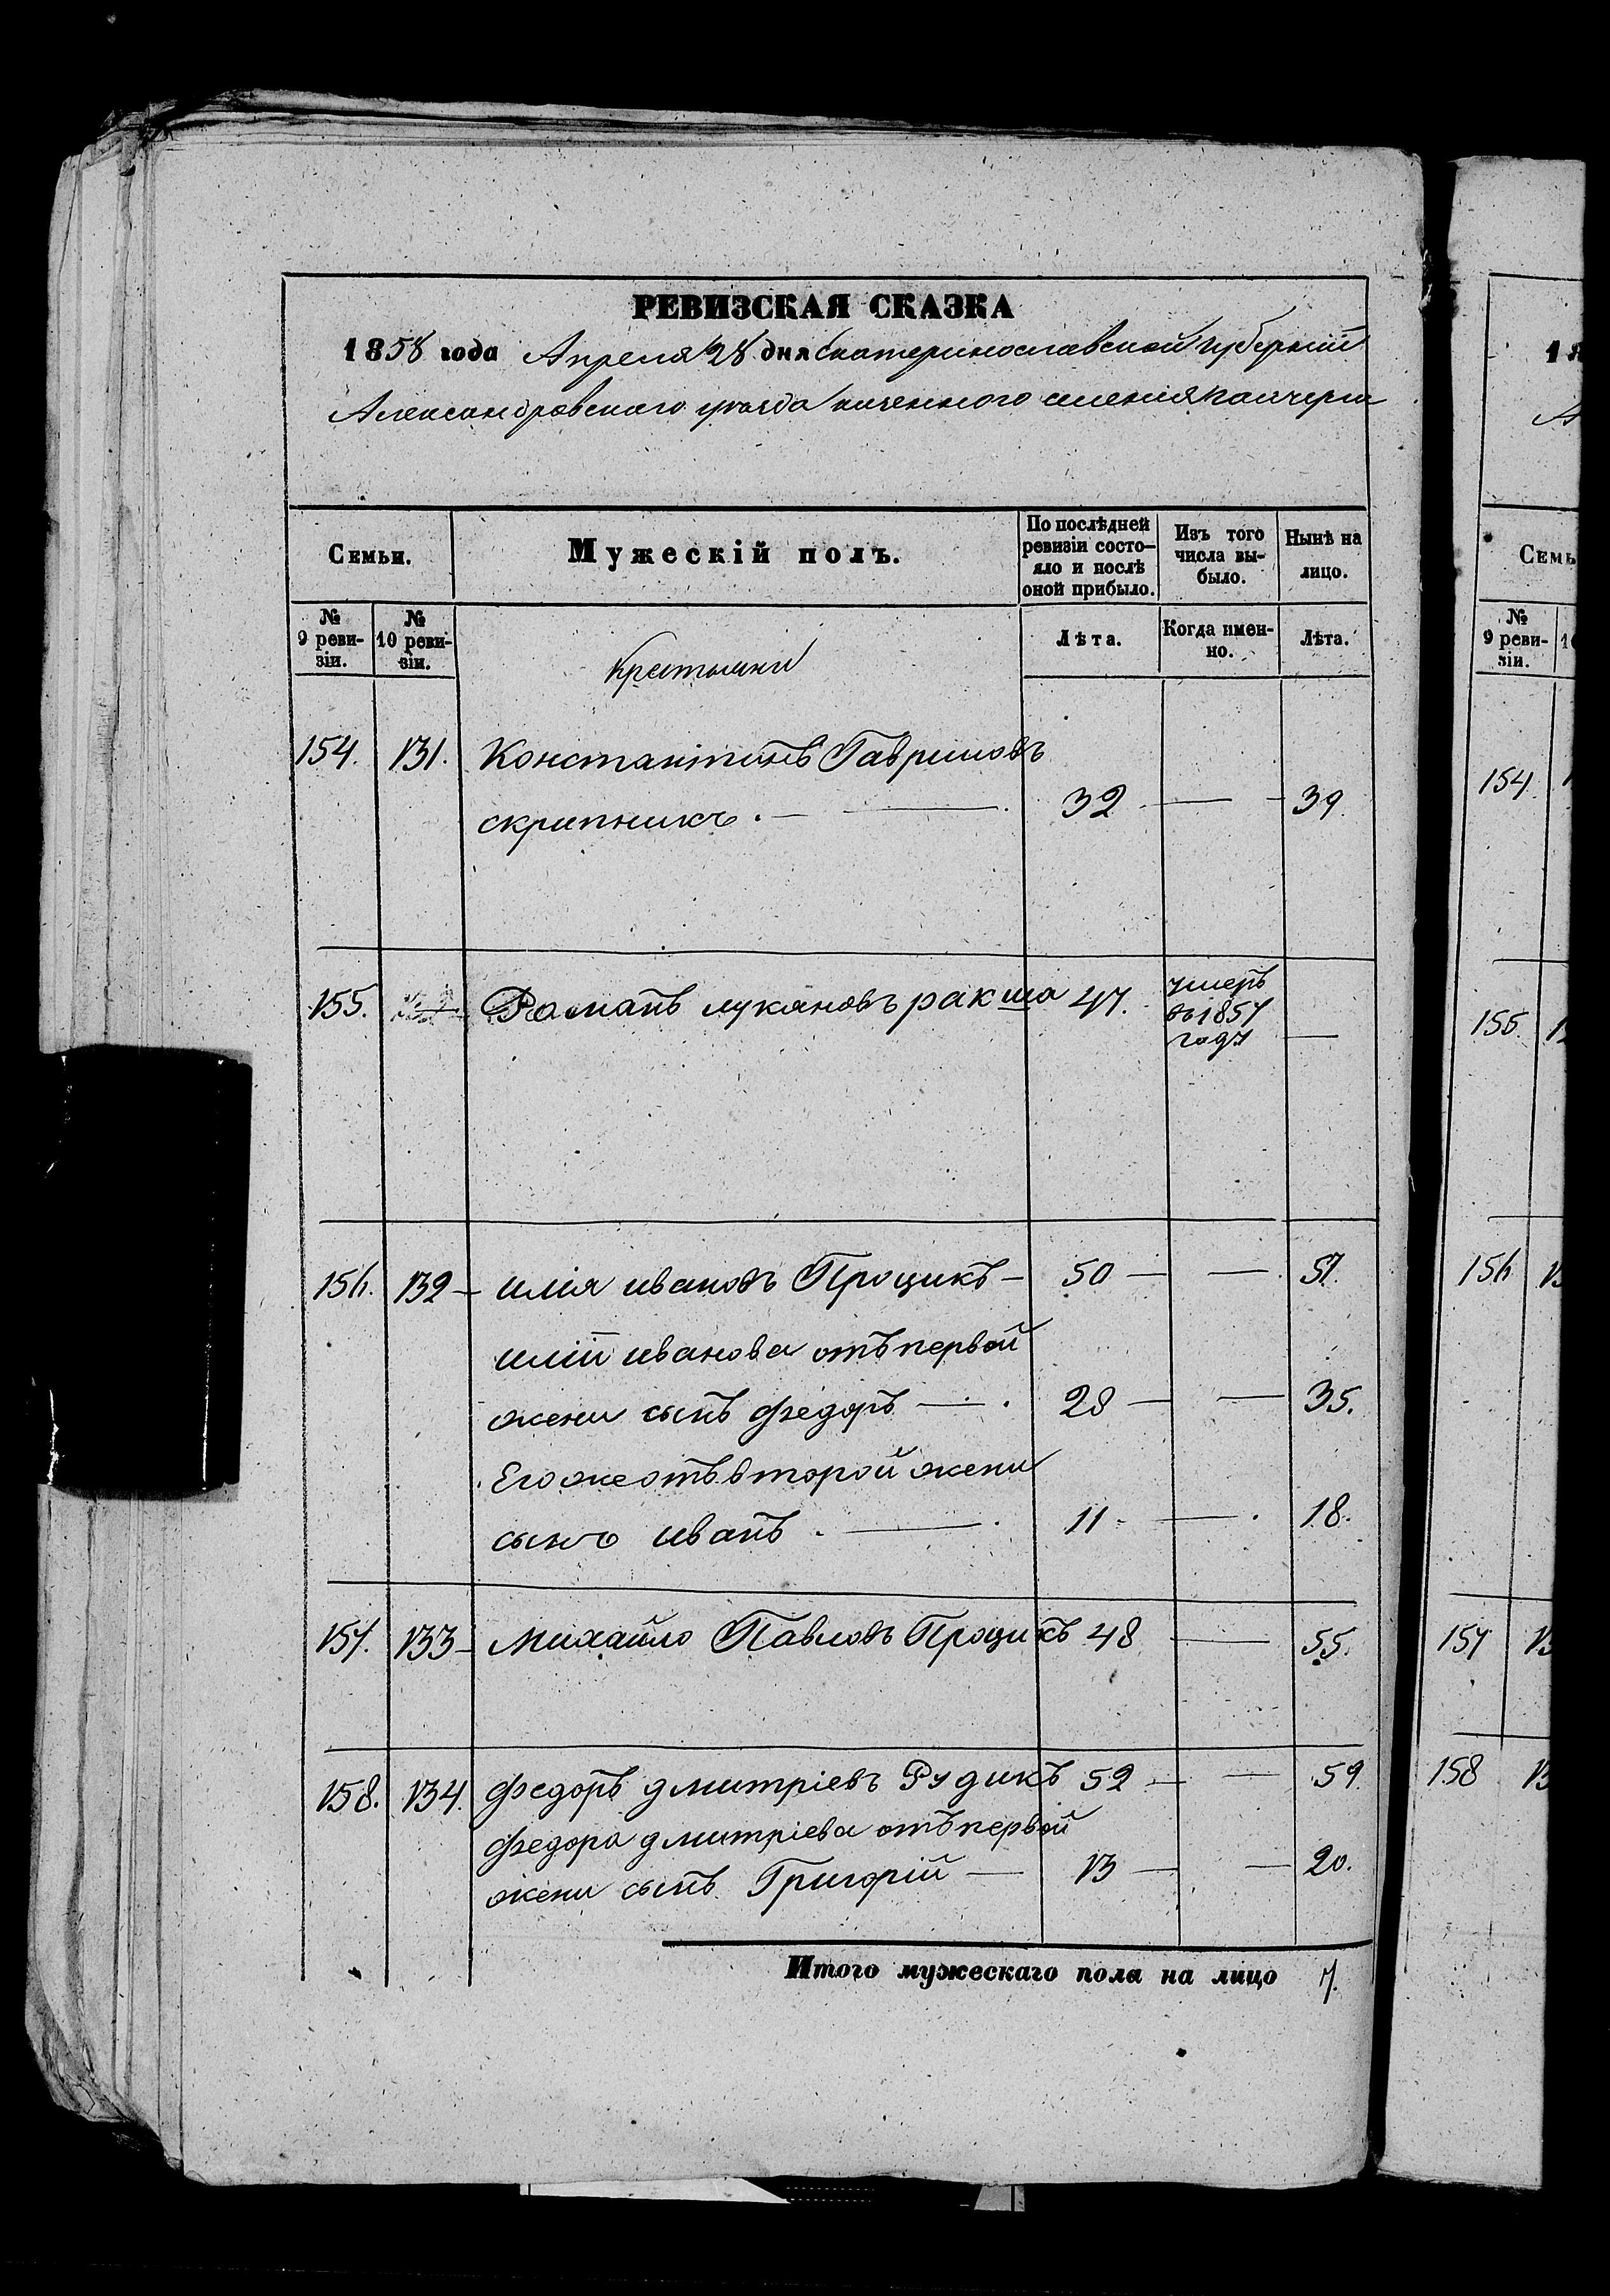 РЕВИЗСКАЯ СКАЗКА
1858 года Апреля 28 дня Екатеринославской губерніи
Александровскаго уезда имения
Семьи. Мужескій полъ. По послѣдней ревизіи состояло и послѣ оной прибыло. Изъ того числа выбыло. Нынѣ на лицо.
№ 9 ревизіи. № 10 ревизіи. Лѣта. Когда именно. Лѣта.
Крестьяни
154. 131. Константинъ Гавриловъ
скрипникъ. 32 — 39.
155. Романъ лукяновъ ракша 47. умеръ
въ 1857
году —
156. 132 илія ивановъ Процикъ — 50 — — 57.
иліи иванова отъ первой
жени сынъ федоръ — 28 — — 35.
Его же отъ второй жени
сынъ иванъ. — 11 — 18.
157. 133 Михайло Павловъ Процикъ 48 — 55.
158. 134. федоръ дмитріевъ Рудикъ 52 — — 59.
федора дмитріева отъ первой
жени сынъ Григорій — 13 — — 20.
Итого мужескаго пола на лицо 7.
18
А
Семь
№ 9 ревизіи. 10
154
155.
156
157
158